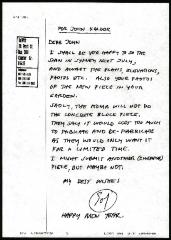 FOR JOHN KALDOR
DEAR JOHN
I SHALL BE VERY HAPPY TO DO THE
SHOW IN SYDNEY NEXT JULY,
AND AWAIT THE PLANS, ELEVATIONS,
PHOTOS ETC. ALSO YOUR PHOTOS
OF THE NEW PIECE IN YOUR
GARDEN.
SADLY, THE MOMA WILL NOT DO
THE CONCRETE BLOCK PIECE,
THEY SAY IT WOULD COST TOO MUCH
TO FABRICATE AND RE-FABRICATE
AS THEY WOULD ONLY WANT IT
FOR A LIMITED TIME.
I MIGHT SUBMIT ANOTHER (CHEAPER)
PIECE, BUT MAYBE NOT.
MY BEST WISHES
Sol
HAPPY NEW YEAR